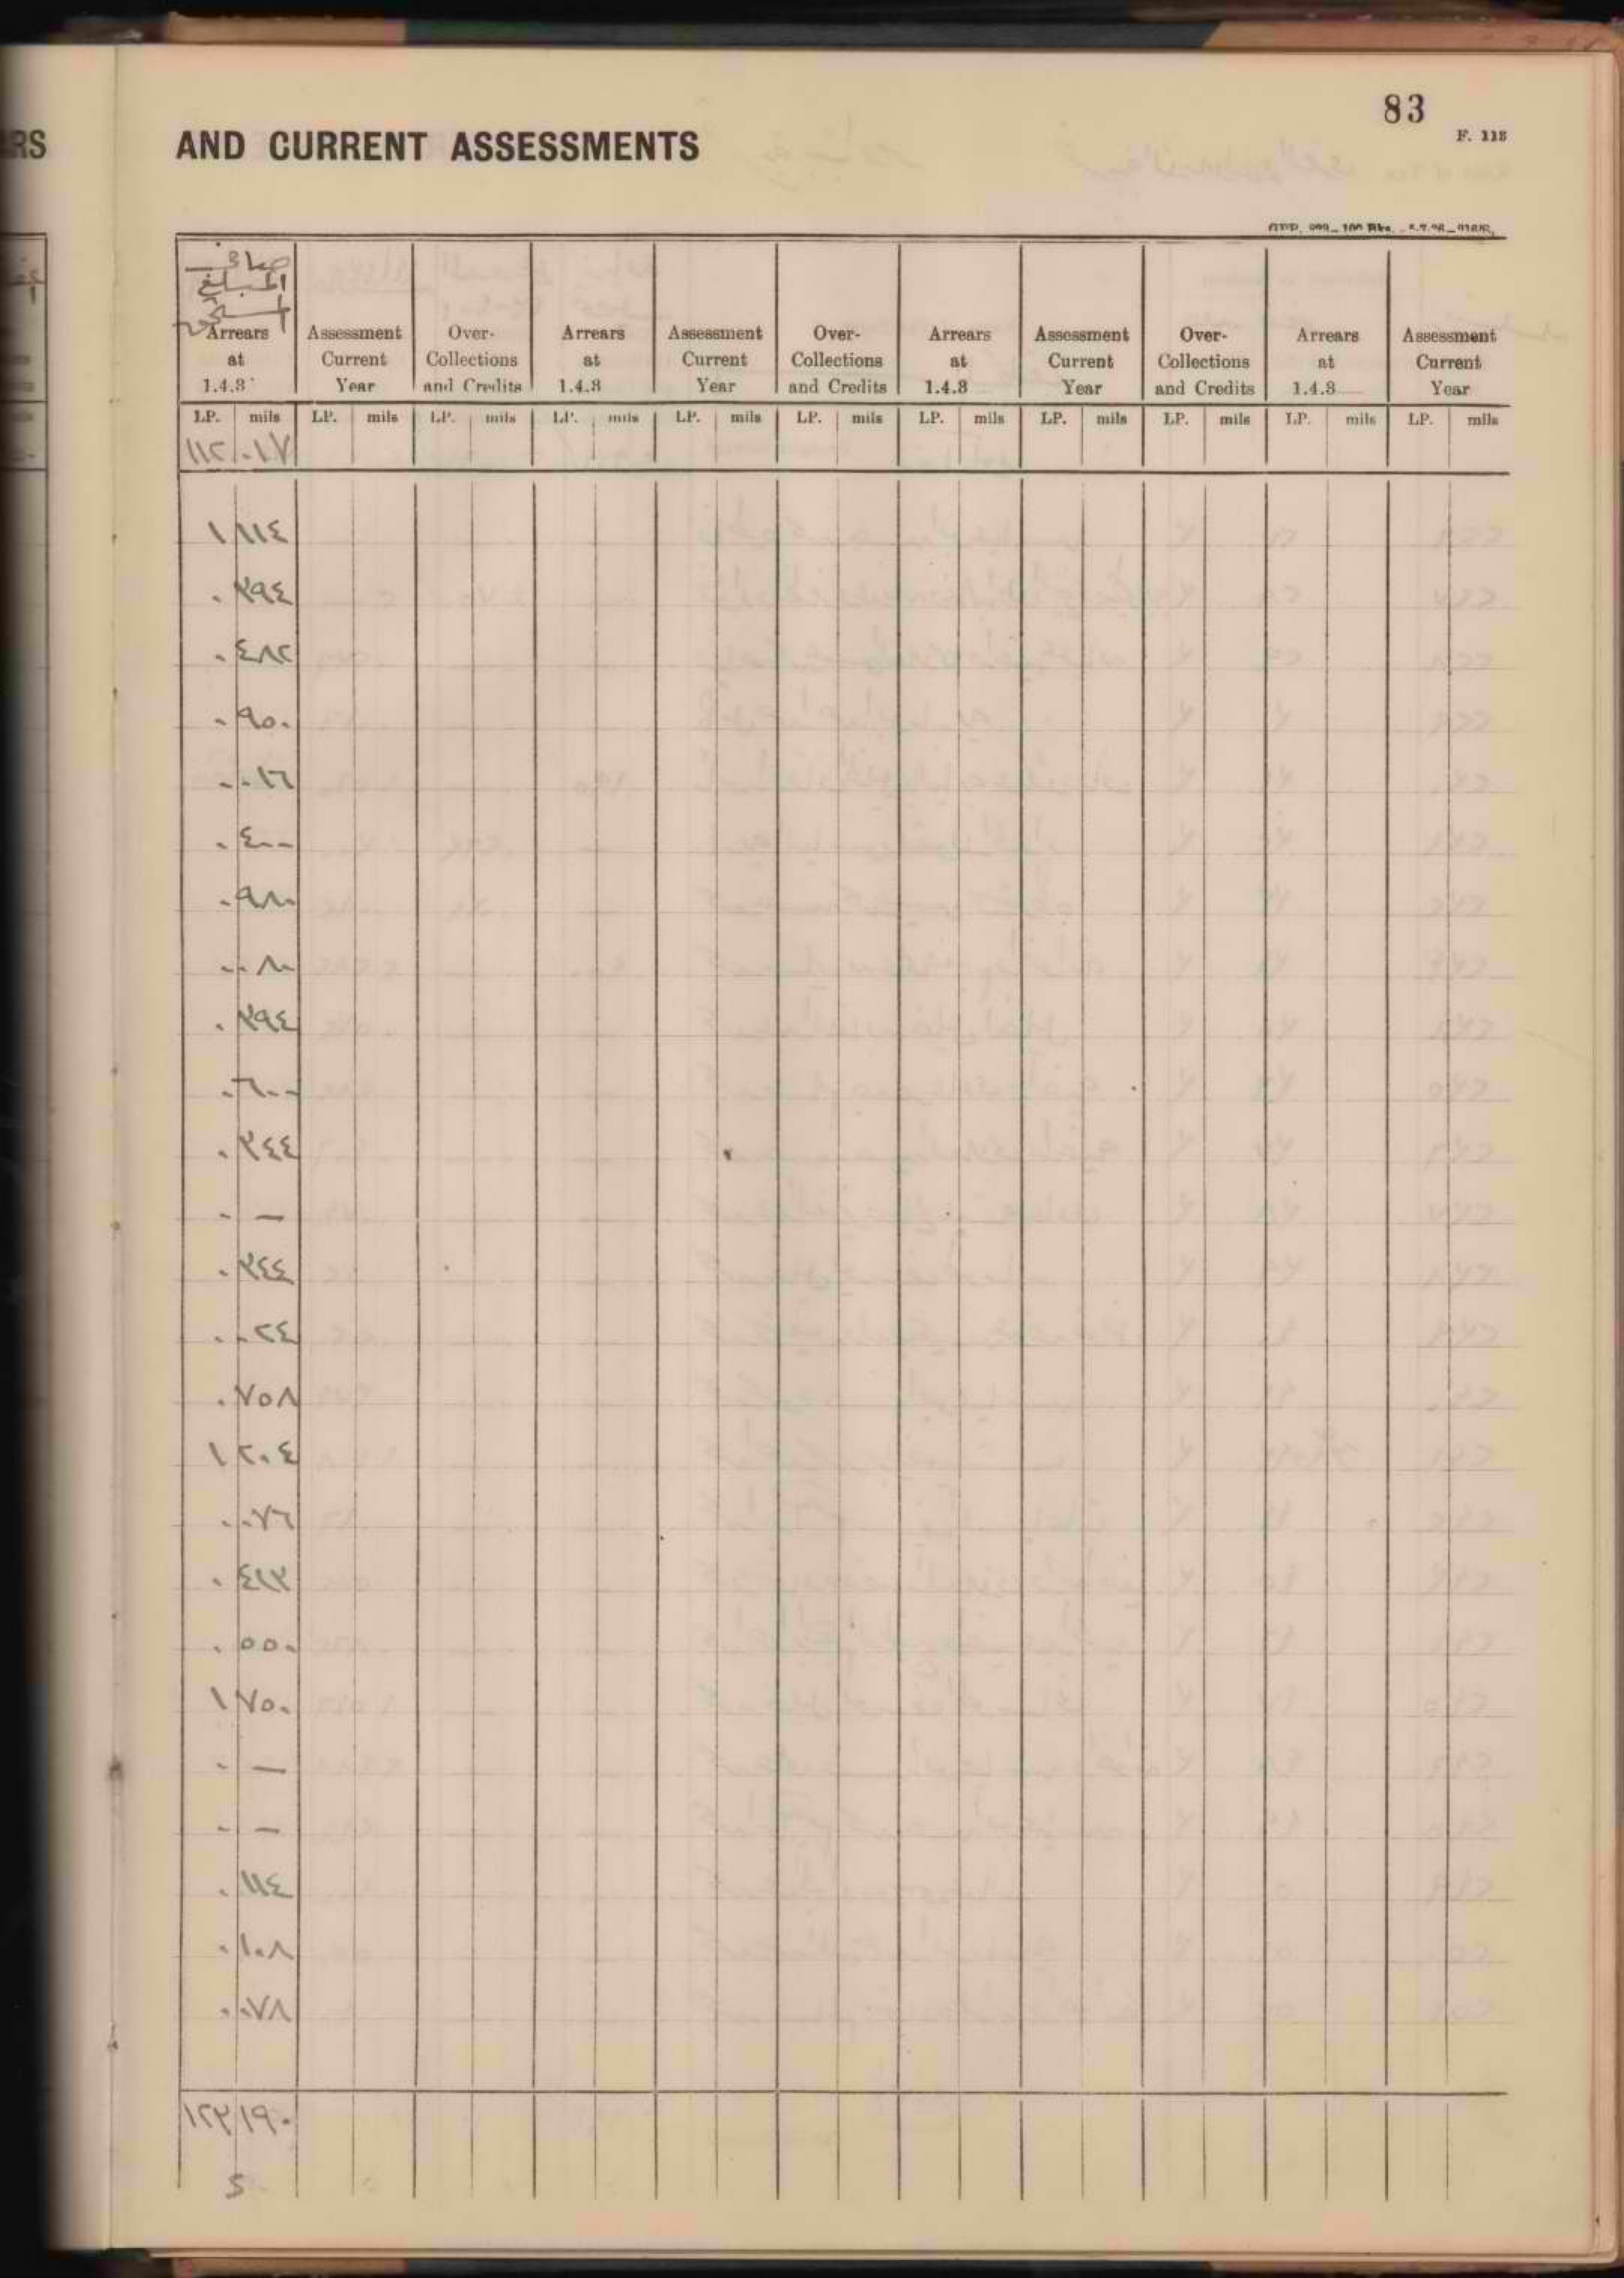 83
F. 118
RS
AND CURRENT ASSESSMENTS
صافي
المبلغ
Arrears at 1.4.3 | Assessment Current Year | Over-Collections and Credits | Arrears at 1.4.3 | Assessment Current Year | Over-Collections and Credits | Arrears at 1.4.3 | Assessment Current Year | Over-Collections and Credits | Arrears at 1.4.3 | Assessment Current Year
LP. mils LP. mils LP. mils LP. mils LP. mils LP. mils LP. mils LP. mils LP. mils LP. mils LP. mils
١١٢ ٠١٧
١ ١١٤
٠ ٣٩٤
٠ ٤٨٢
٠ ٩٥٠
٠ ٠١٦
٠ ٤٠٠
٠ ٩٨٠
٠ ٠٨٠
٠ ٣٩٤
٠ ٦٠٠
٠ ٣٤٤
٠ —
٠ ٣٤٤
٠ ٠٢٤
٠ ٧٥٨
١ ٢٠٤
٠ ٠٧٦
٠ ٤١٣
٠ ٥٥٠
١ ٧٥٠
٠ —
٠ —
٠ ١١٤
٠ ١٠٨
٠ ٠٧٨
١٢٣ ١٩٠